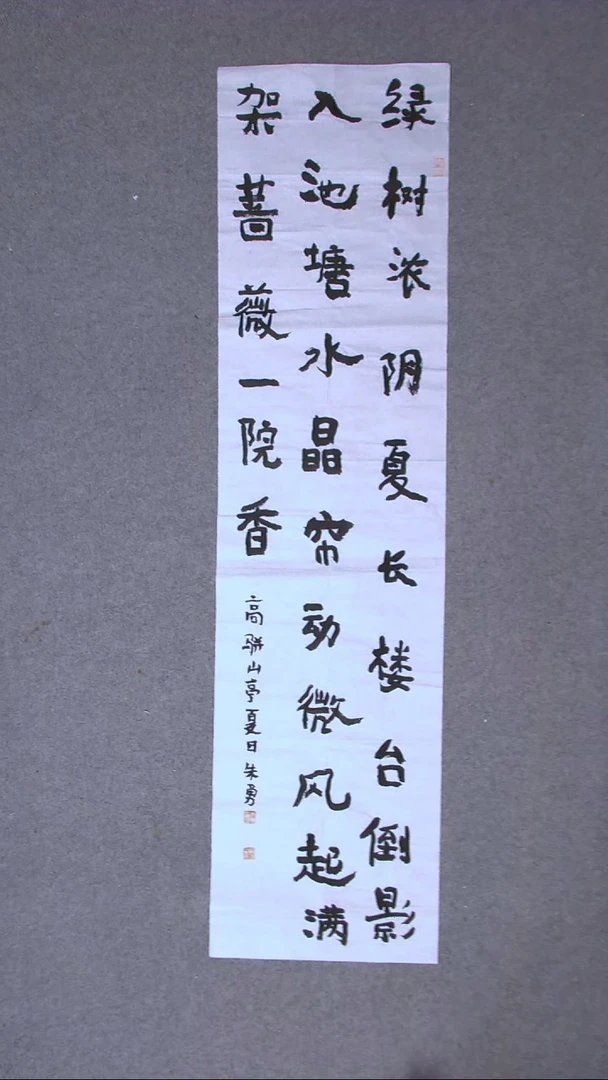 绿树浓阴夏长楼台倒影
入池塘水晶帘动微风起满
架蔷薇一院香
高骈山亭夏日朱勇